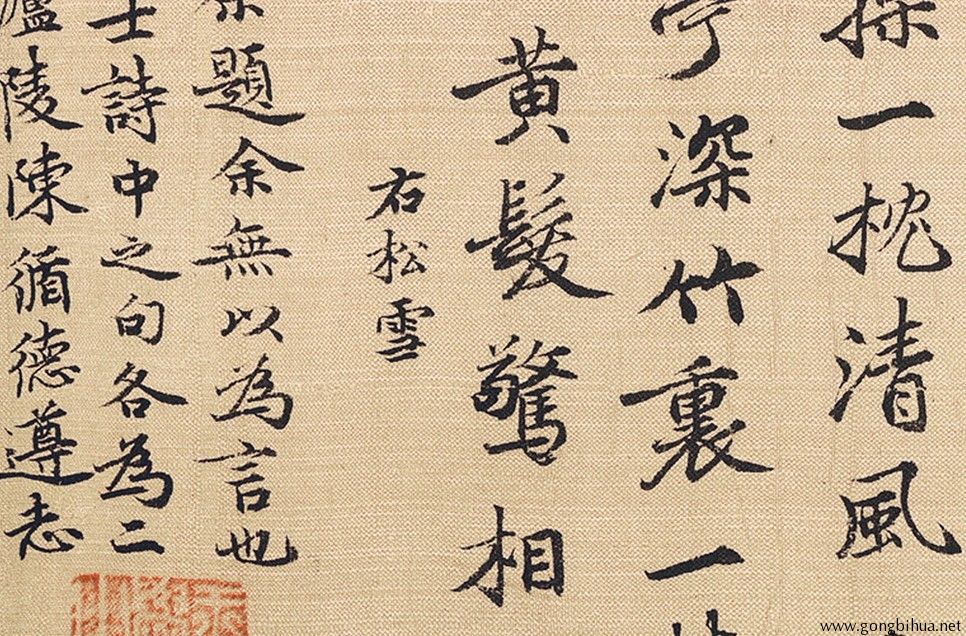 一枕清風
深竹裏一
黃髮驚相
右松雪
題余無以為言也
士詩中之句各為二
陵陳循德遵志
www.gongbihua.net